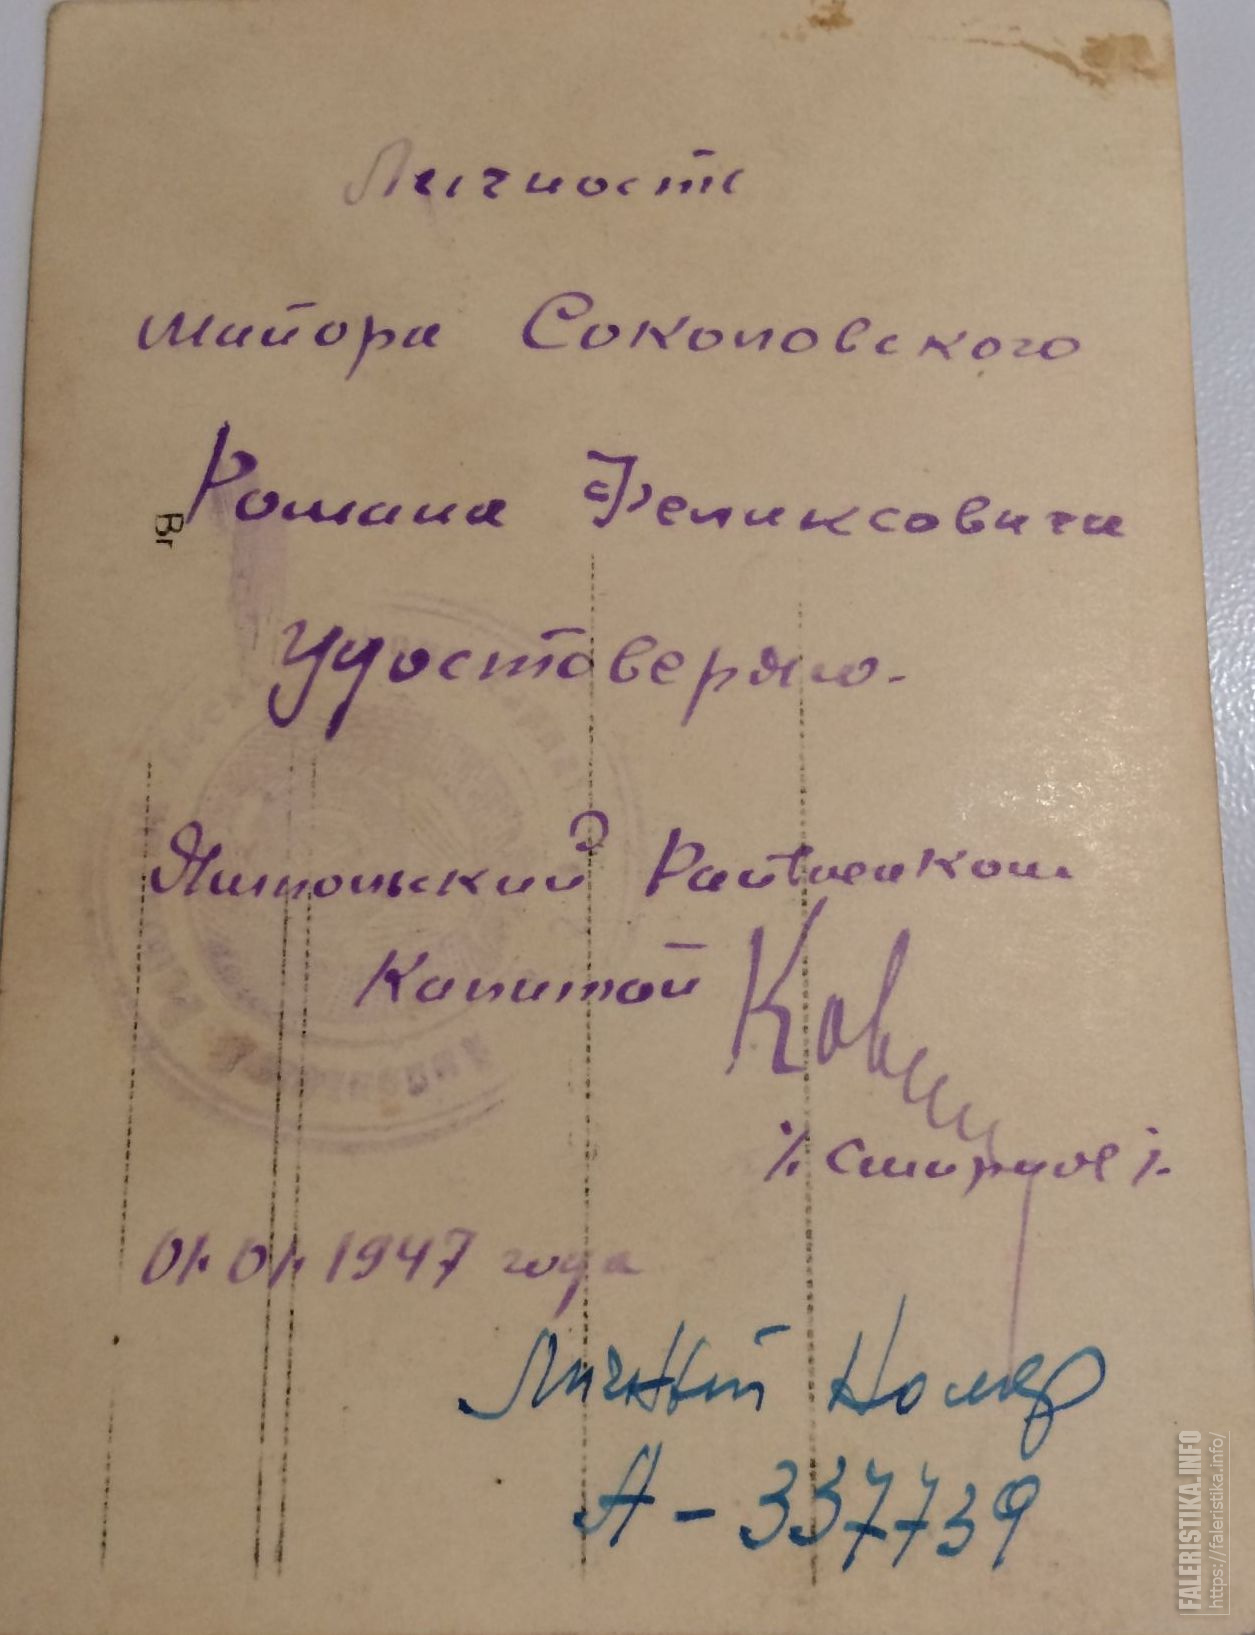 Личность
майора Соколовского
Романа Феликсовича
Br
Удостоверяю.
Райвоенком
Капитан
01.01.1947 года
Личный номер
А-337739
FALERISTIKA.INFO
https://faleristika.info/